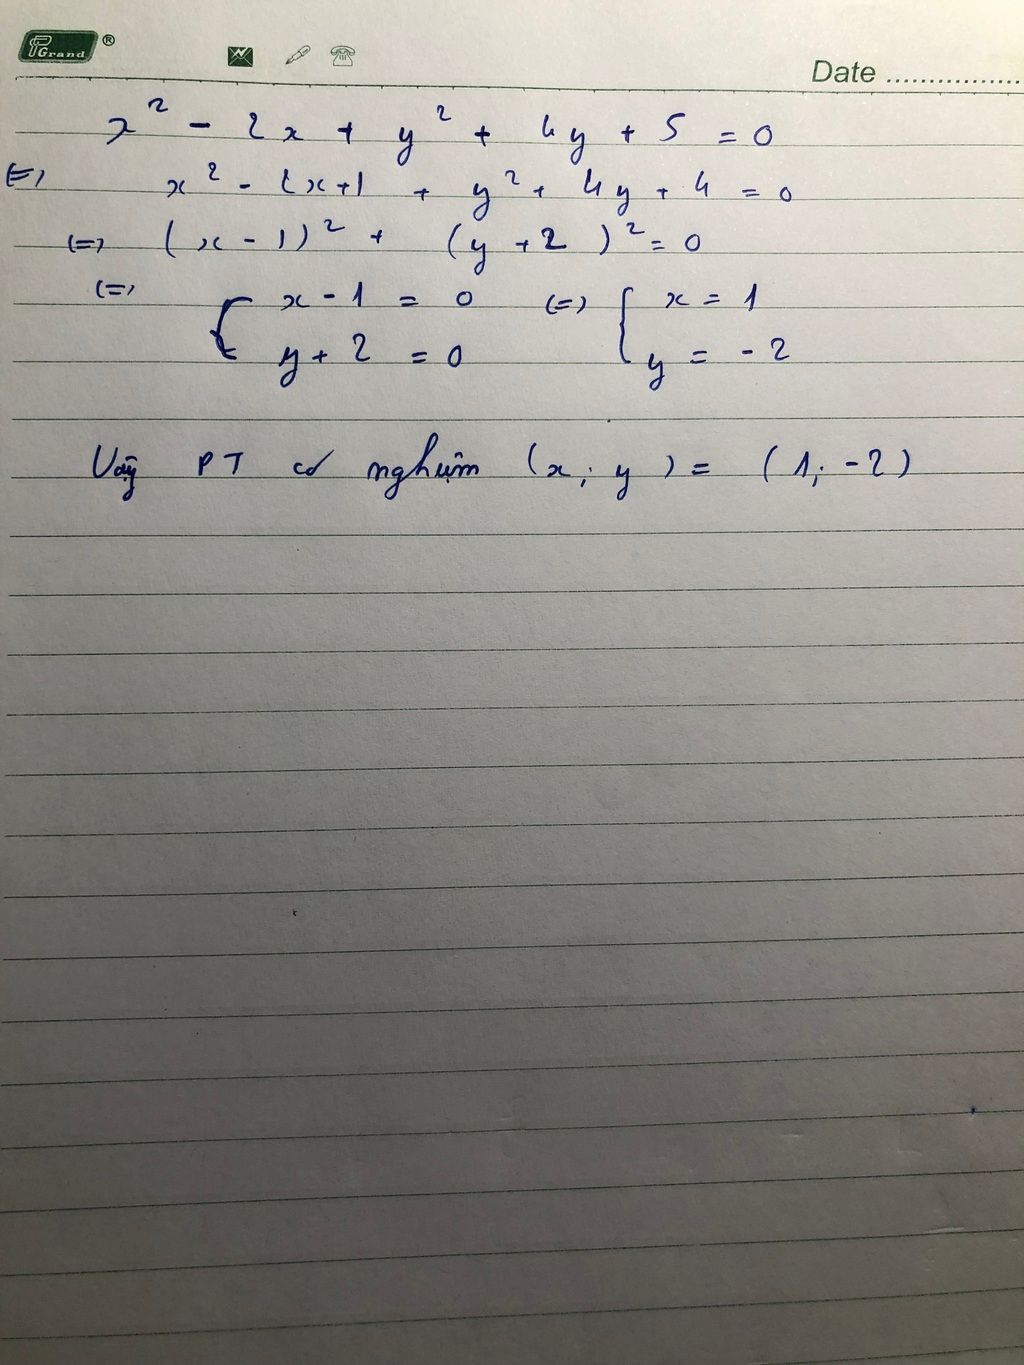 PGrand ®
Date ................
x² - 2x + y² + 4y + 5 = 0
(=) x² - 2x+1 + y² + 4y + 4 = 0
(=) (x - 1)² + (y + 2)² = 0
(=) { x - 1 = 0 (=) { x = 1
y + 2 = 0 y = - 2
Vậy PT có nghiệm (x; y) = (1; -2)